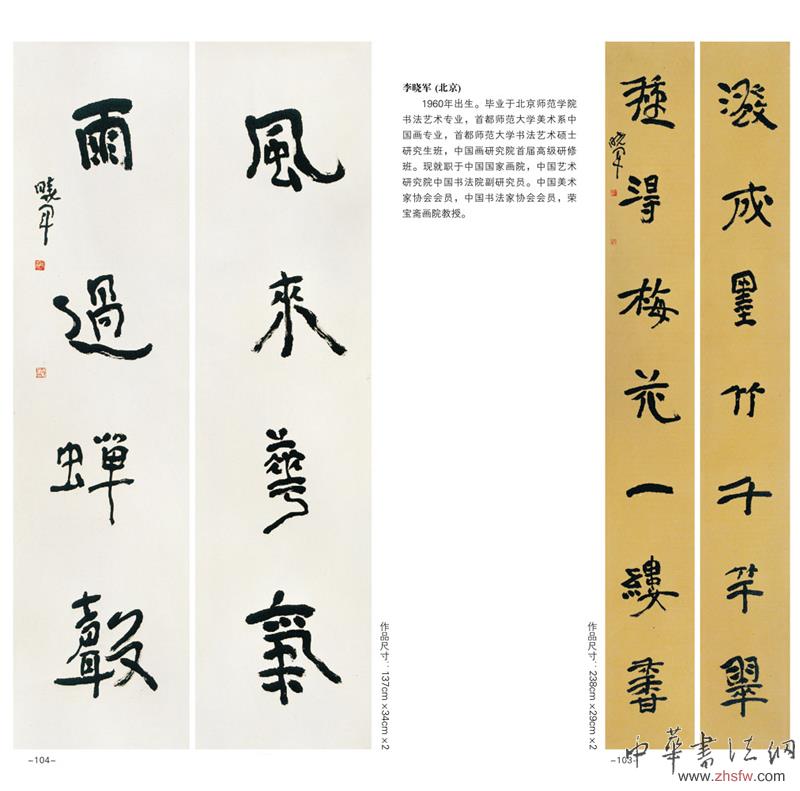 潑成墨竹千竿翠
種得梅花一縷香
曉軍
作品尺寸：238cm×29cm×2
-103-
李晓军 (北京)
1960年出生。毕业于北京师范学院
书法艺术专业，首都师范大学美术系中
国画专业，首都师范大学书法艺术硕士
研究生班，中国画研究院首届高级研修
班。现就职于中国国家画院，中国艺术
研究院中国书法院副研究员。中国美术
家协会会员，中国书法家协会会员，荣
宝斋画院教授。
風來華氣
雨過蟬聲
曉軍
作品尺寸：137cm×34cm×2
-104-
中華書法網
www.zhsfw.com